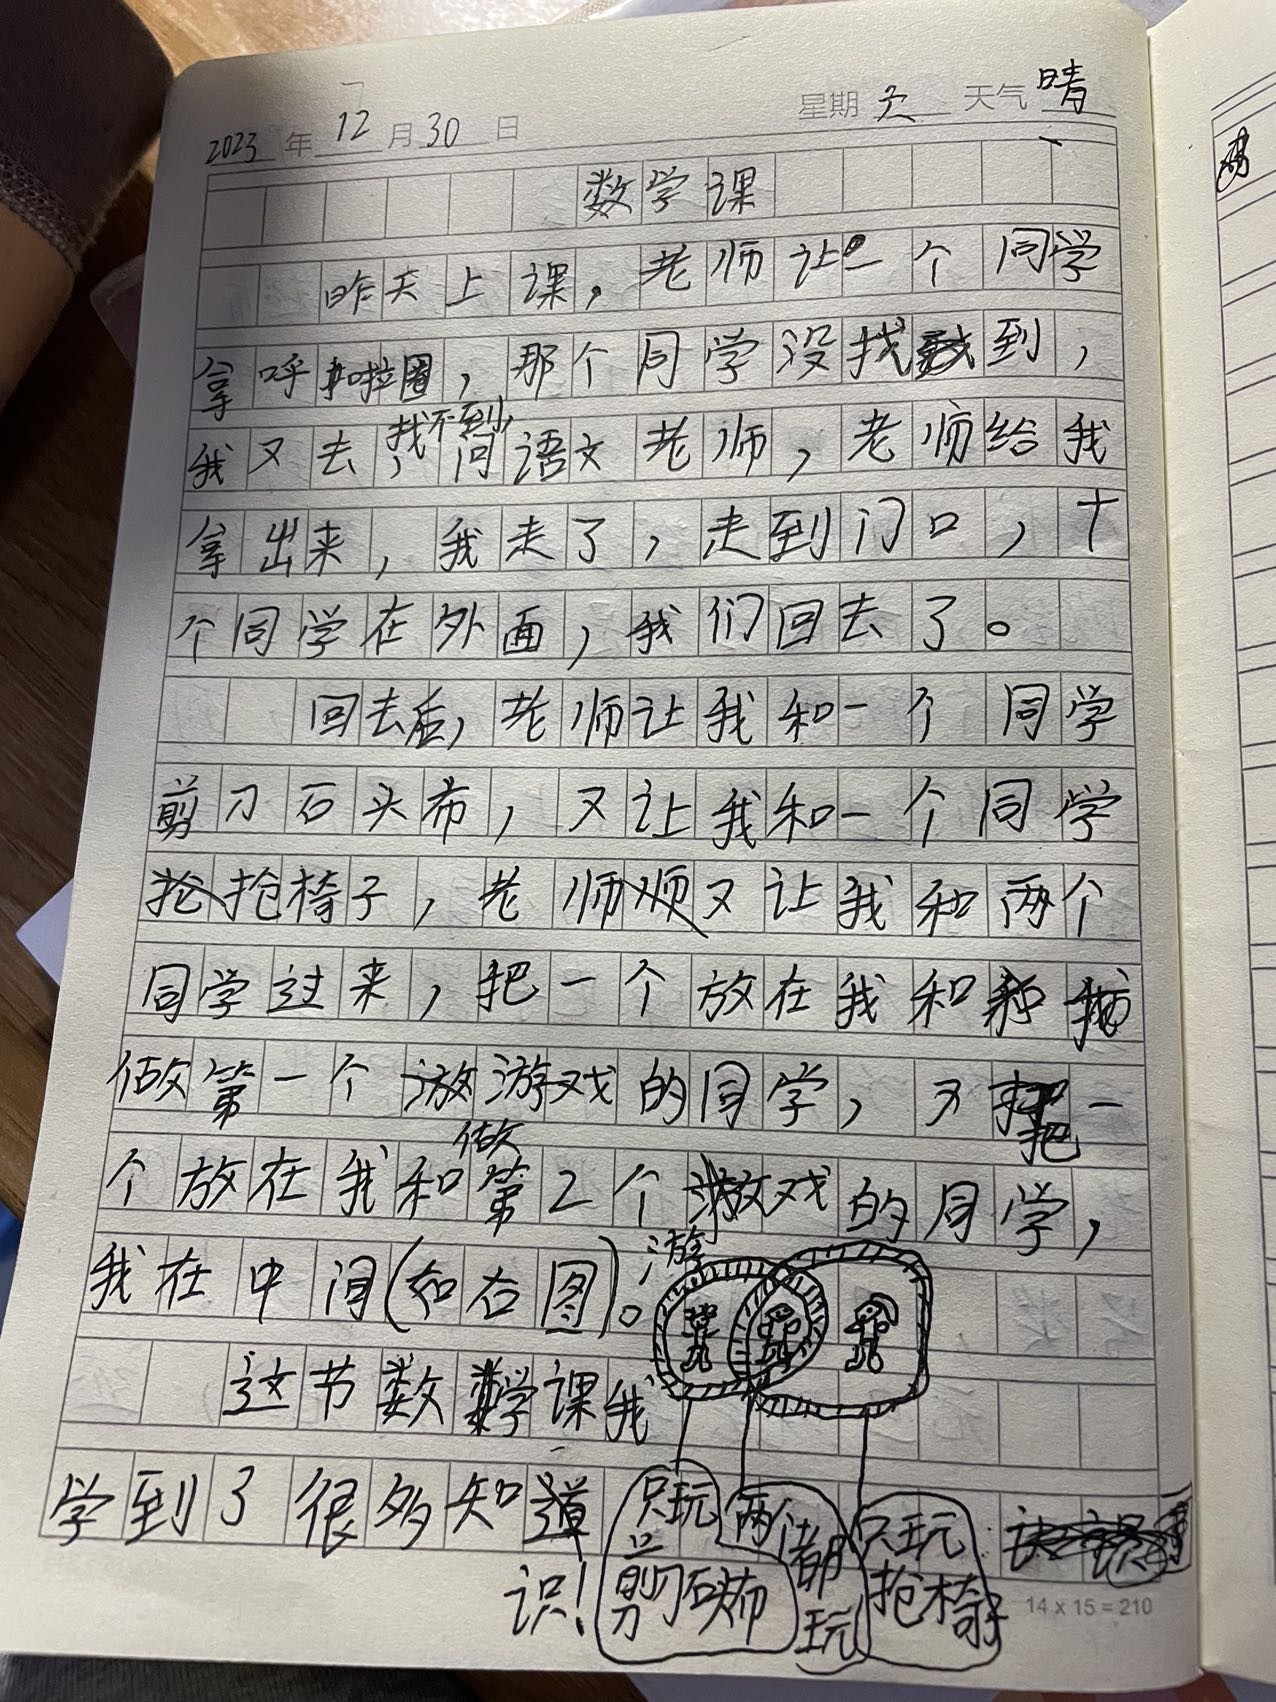 2023年12月30日 星期六 天气晴
数学课
昨天上课,老师让一个同学
拿呼啦圈,那个同学没找到,
我又去找不到,问语文老师,老师给我
拿出来,我走了,走到门口,十
个同学在外面,我们回去了。
回去后,老师让我和一个同学
剪刀石头布,又让我和一个同学
抢椅子,老师又让我和两个
同学过来,把一个放在我和
做第一个游戏的同学,又把一
个放在我和做第2个游戏的同学,
我在中间(如右图)。
这节数学课我
学到了很多知
识!
只玩剪刀石头布
两个都玩
只玩抢椅子
14×15=210